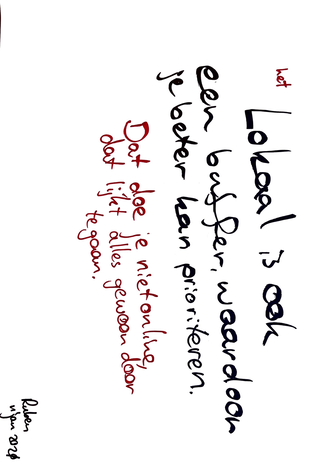 het
Lokaal is ook
een buffer, waardoor
je beter kan prioriteren.
Dat doe je niet online,
dat lijkt alles gewoon door
te gaan.
Ruben